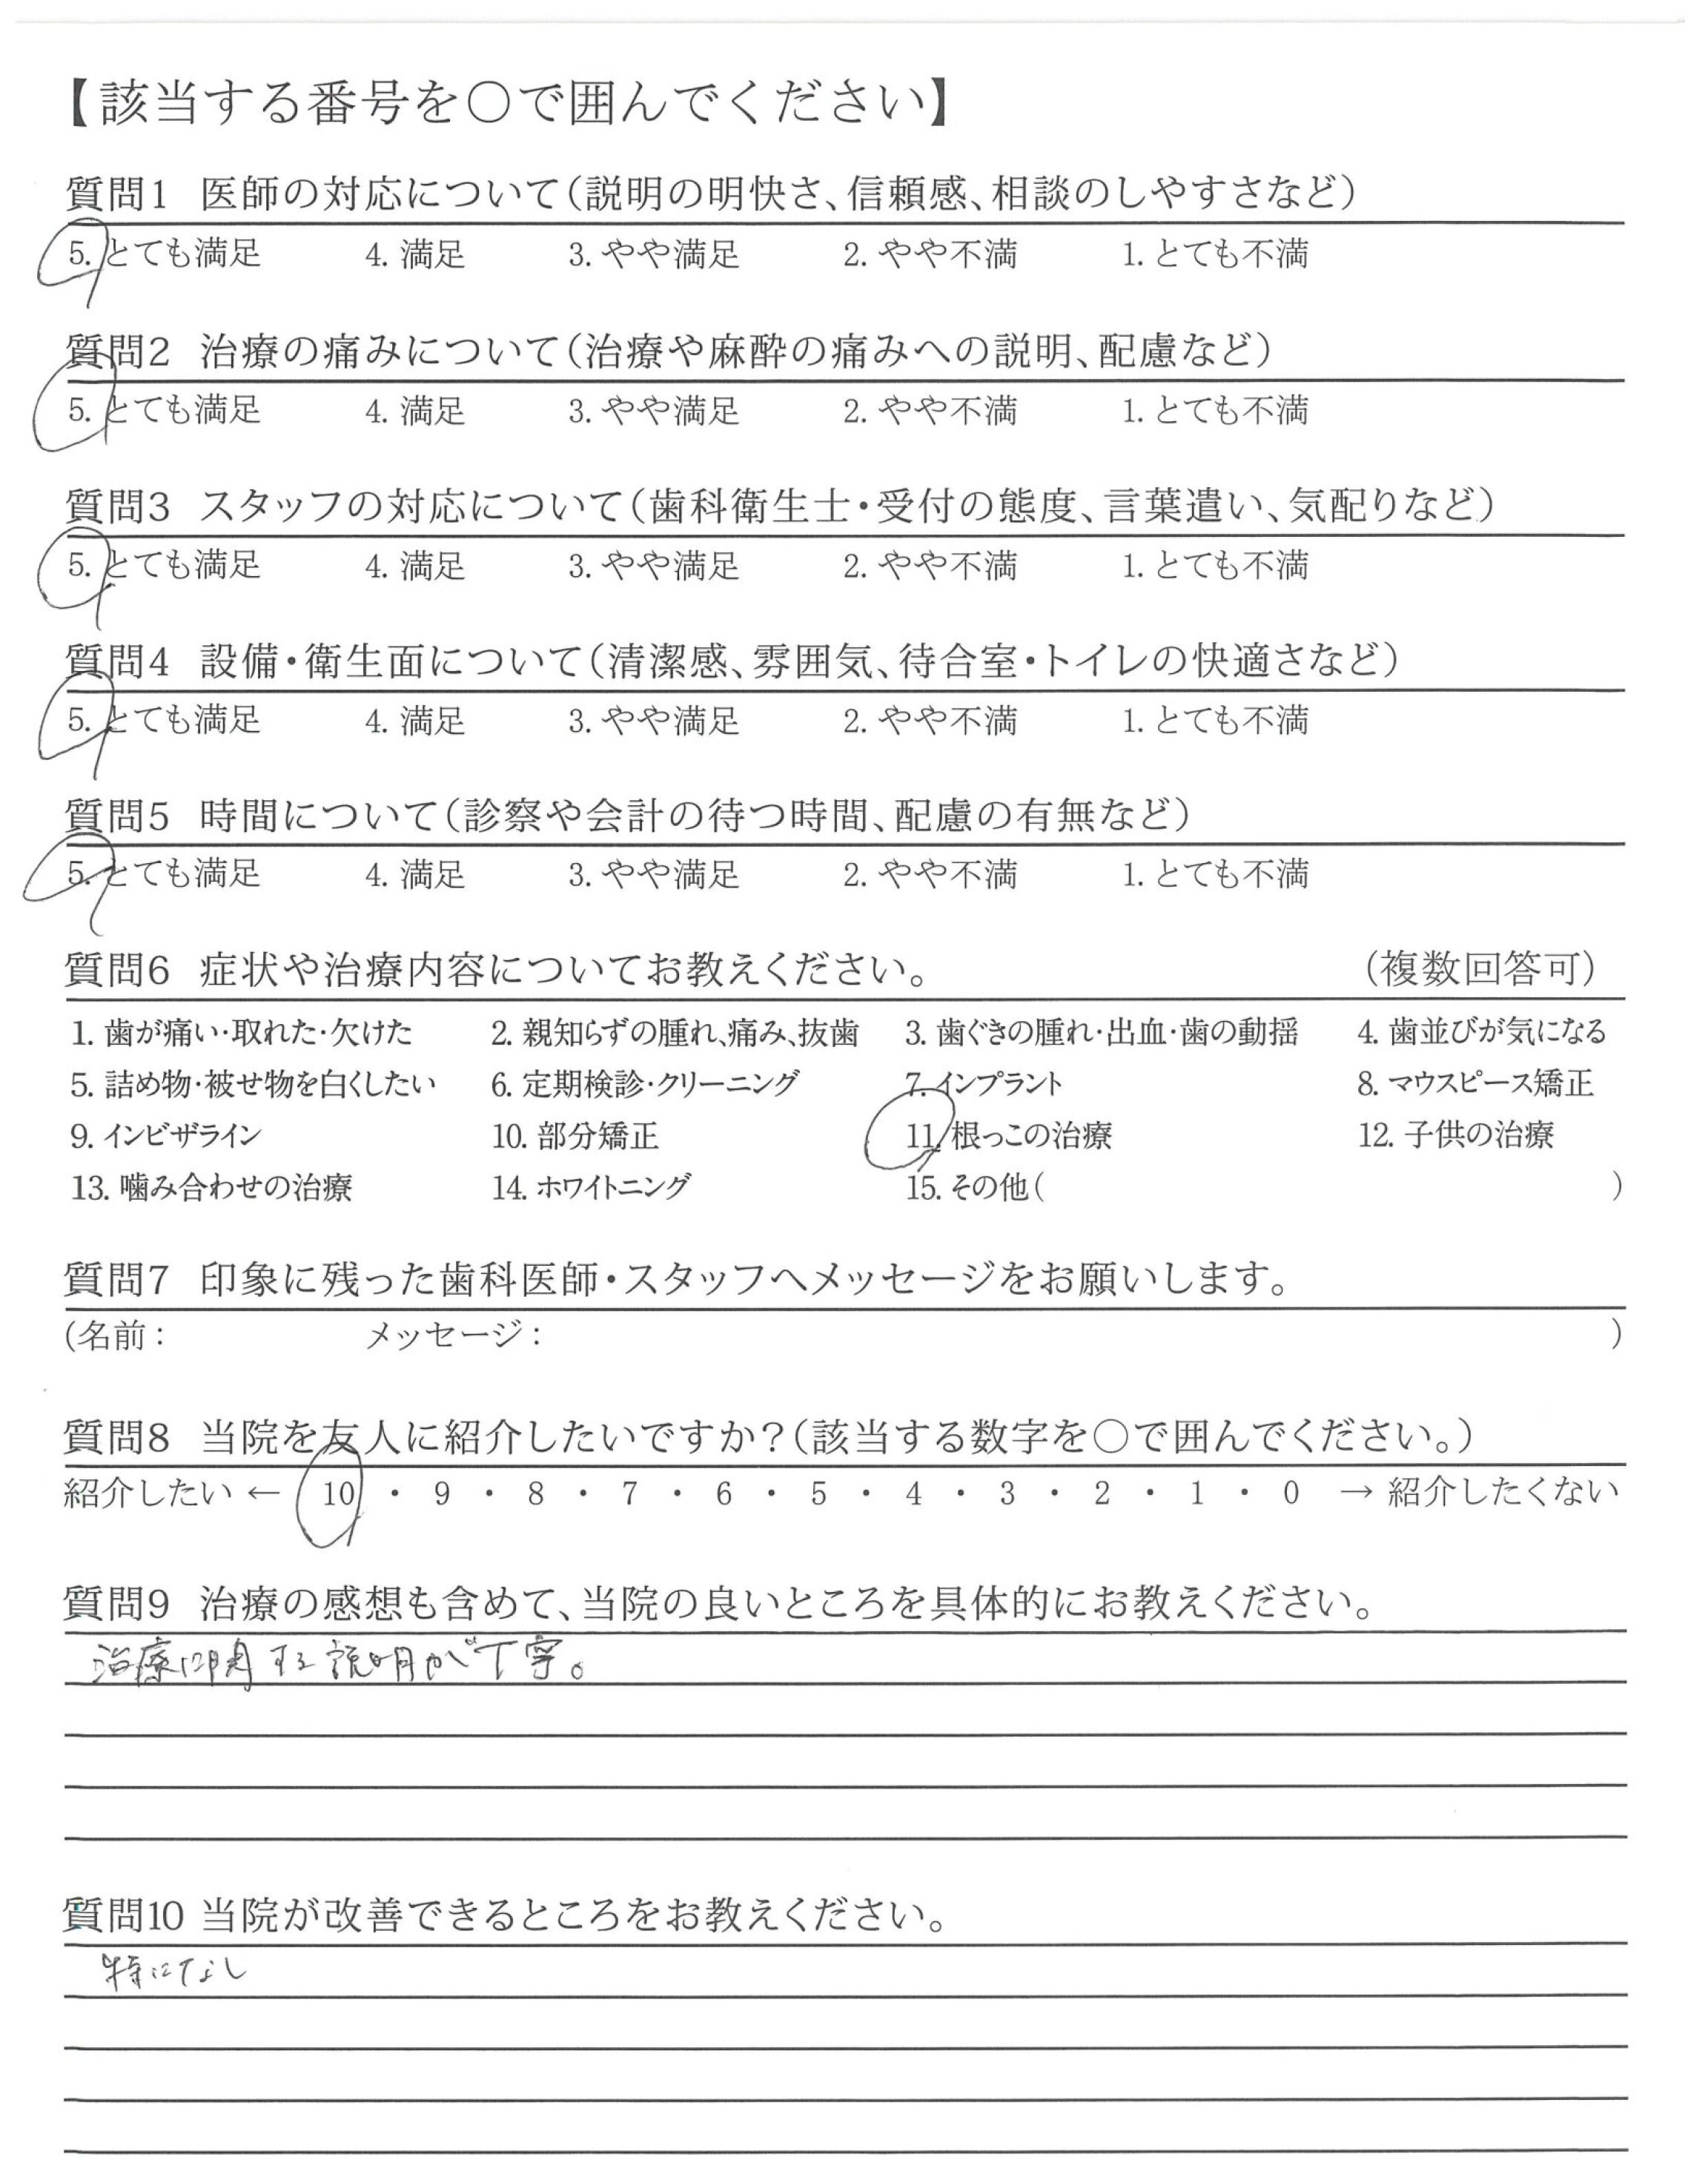 【該当する番号を〇で囲んでください】
質問1 医師の対応について(説明の明快さ、信頼感、相談のしやすさなど)
5. とても満足 4. 満足 3. やや満足 2. やや不満 1. とても不満
質問2 治療の痛みについて(治療や麻酔の痛みへの説明、配慮など)
5. とても満足 4. 満足 3. やや満足 2. やや不満 1. とても不満
質問3 スタッフの対応について(歯科衛生士・受付の態度、言葉遣い、気配りなど)
5. とても満足 4. 満足 3. やや満足 2. やや不満 1. とても不満
質問4 設備・衛生面について(清潔感、雰囲気、待合室・トイレの快適さなど)
5. とても満足 4. 満足 3. やや満足 2. やや不満 1. とても不満
質問5 時間について(診察や会計の待つ時間、配慮の有無など)
5. とても満足 4. 満足 3. やや満足 2. やや不満 1. とても不満
質問6 症状や治療内容についてお教えください。 (複数回答可)
1. 歯が痛い・取れた・欠けた 2. 親知らずの腫れ、痛み、抜歯 3. 歯ぐきの腫れ・出血・歯の動揺 4. 歯並びが気になる
5. 詰め物・被せ物を白くしたい 6. 定期検診・クリーニング 7. インプラント 8. マウスピース矯正
9. インビザライン 10. 部分矯正 11. 根っこの治療 12. 子供の治療
13. 噛み合わせの治療 14. ホワイトニング 15. その他( )
質問7 印象に残った歯科医師・スタッフへメッセージをお願いします。
(名前: メッセージ: )
質問8 当院を友人に紹介したいですか?(該当する数字を〇で囲んでください。)
紹介したい ← 10 ・ 9 ・ 8 ・ 7 ・ 6 ・ 5 ・ 4 ・ 3 ・ 2 ・ 1 ・ 0 → 紹介したくない
質問9 治療の感想も含めて、当院の良いところを具体的にお教えください。
治療に関する説明が丁寧。
質問10 当院が改善できるところをお教えください。
特になし